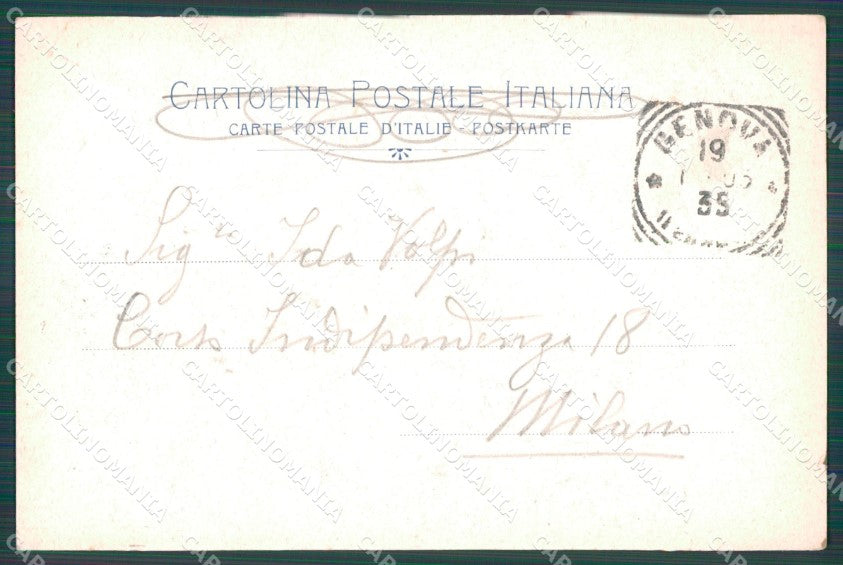 CARTOLINA POSTALE ITALIANA
CARTE POSTALE D'ITALIE - POSTKARTE
GENOVA
19
05
35
Sig.na Ida Volpi
Corso Indipendenza 18
Milano
CARTOLINOMANIA